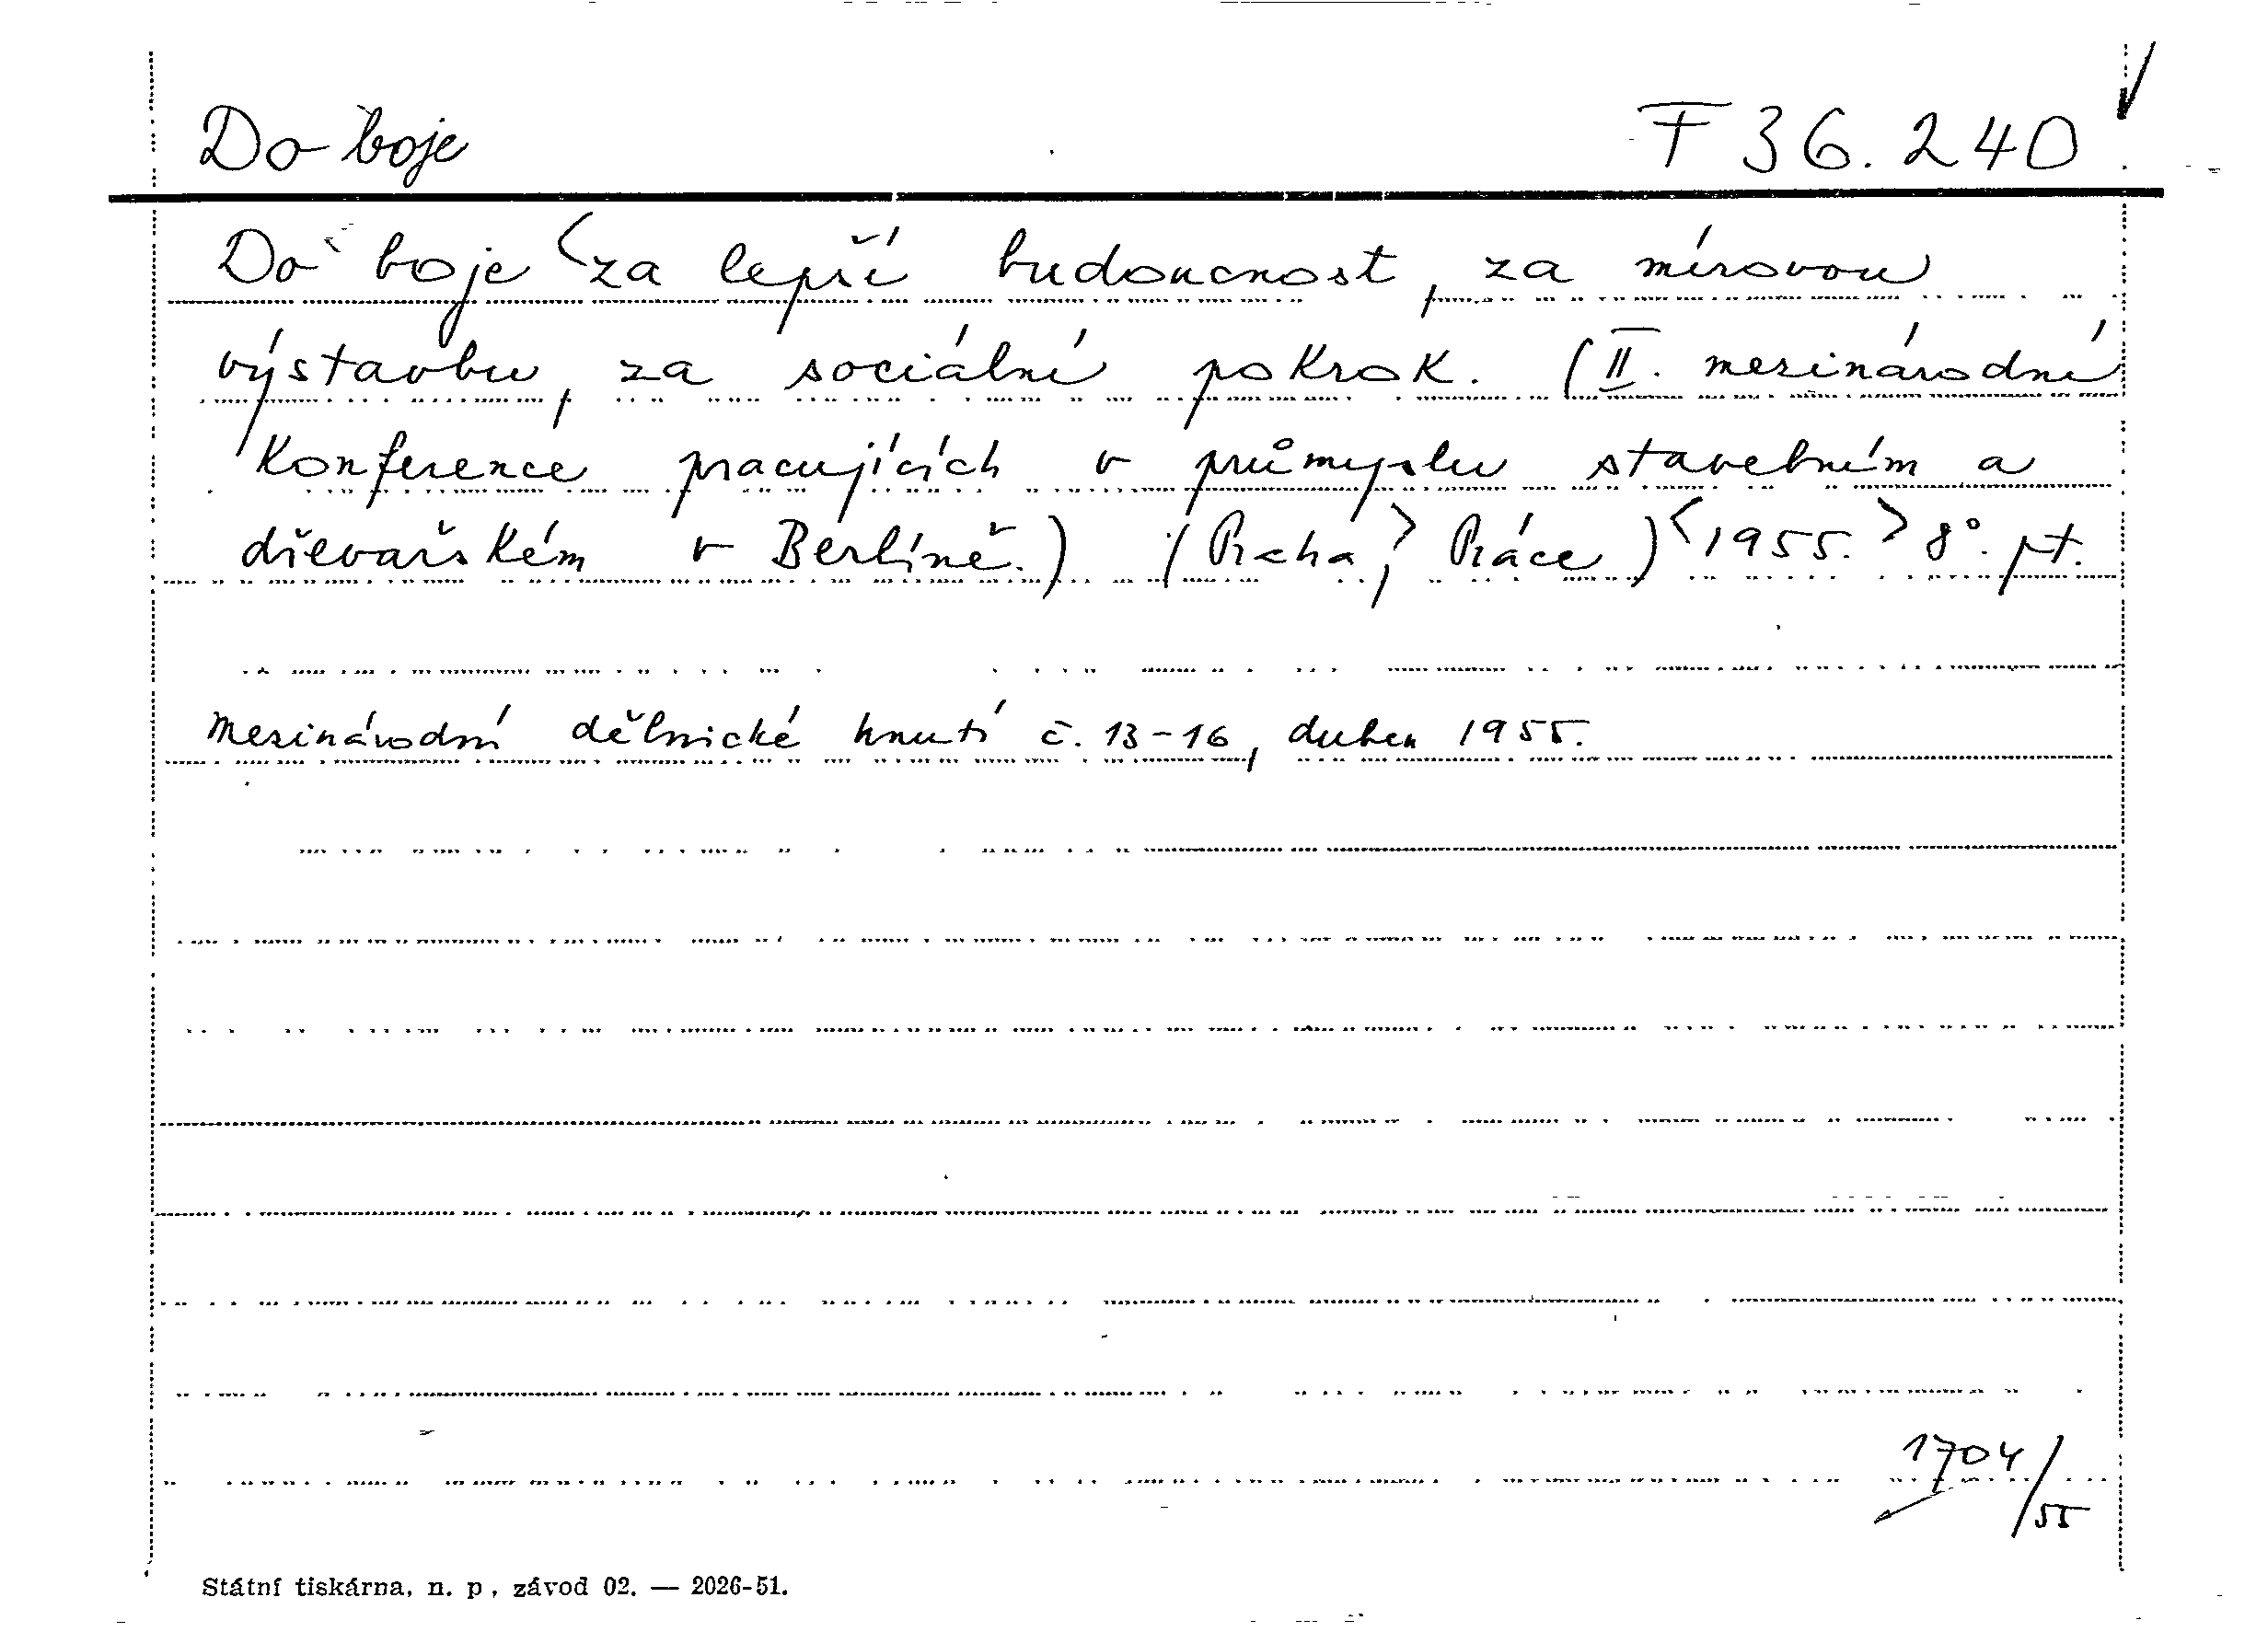 Do boje F 36.240
Do boje <za lepší budoucnost, za mírovou
výstavbu, za sociální pokrok. (II. mezinárodní
konference pracujících v průmyslu stavebním a
dřevařském v Berlíně.) (Praha,> Práce) <1955.> 8°. pt.
Mezinárodní dělnické hnutí č. 13-16, duben 1955.
1704/55
Státní tiskárna, n. p, závod 02. — 2026-51.